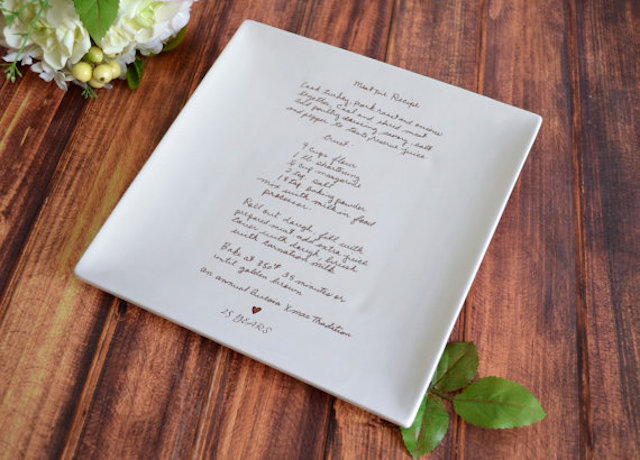 Meat Pie Recipe
Cook turkey, pork roast and onions
together. Cool and shred meat
add poultry dressing, savory, salt
and pepper to taste, reserve juice
Crust:
9 cups flour
1 lb shortening
½ cup margarine
2 tsp salt
18 tsp baking powder
mix with milk in food
processor.
Roll out dough, fill with
prepared meat add extra juice
cover with dough, brush
with carnation milk
Bake at 350° 35 minutes or
until golden brown
an annual Xmas Tradition
25 YEARS